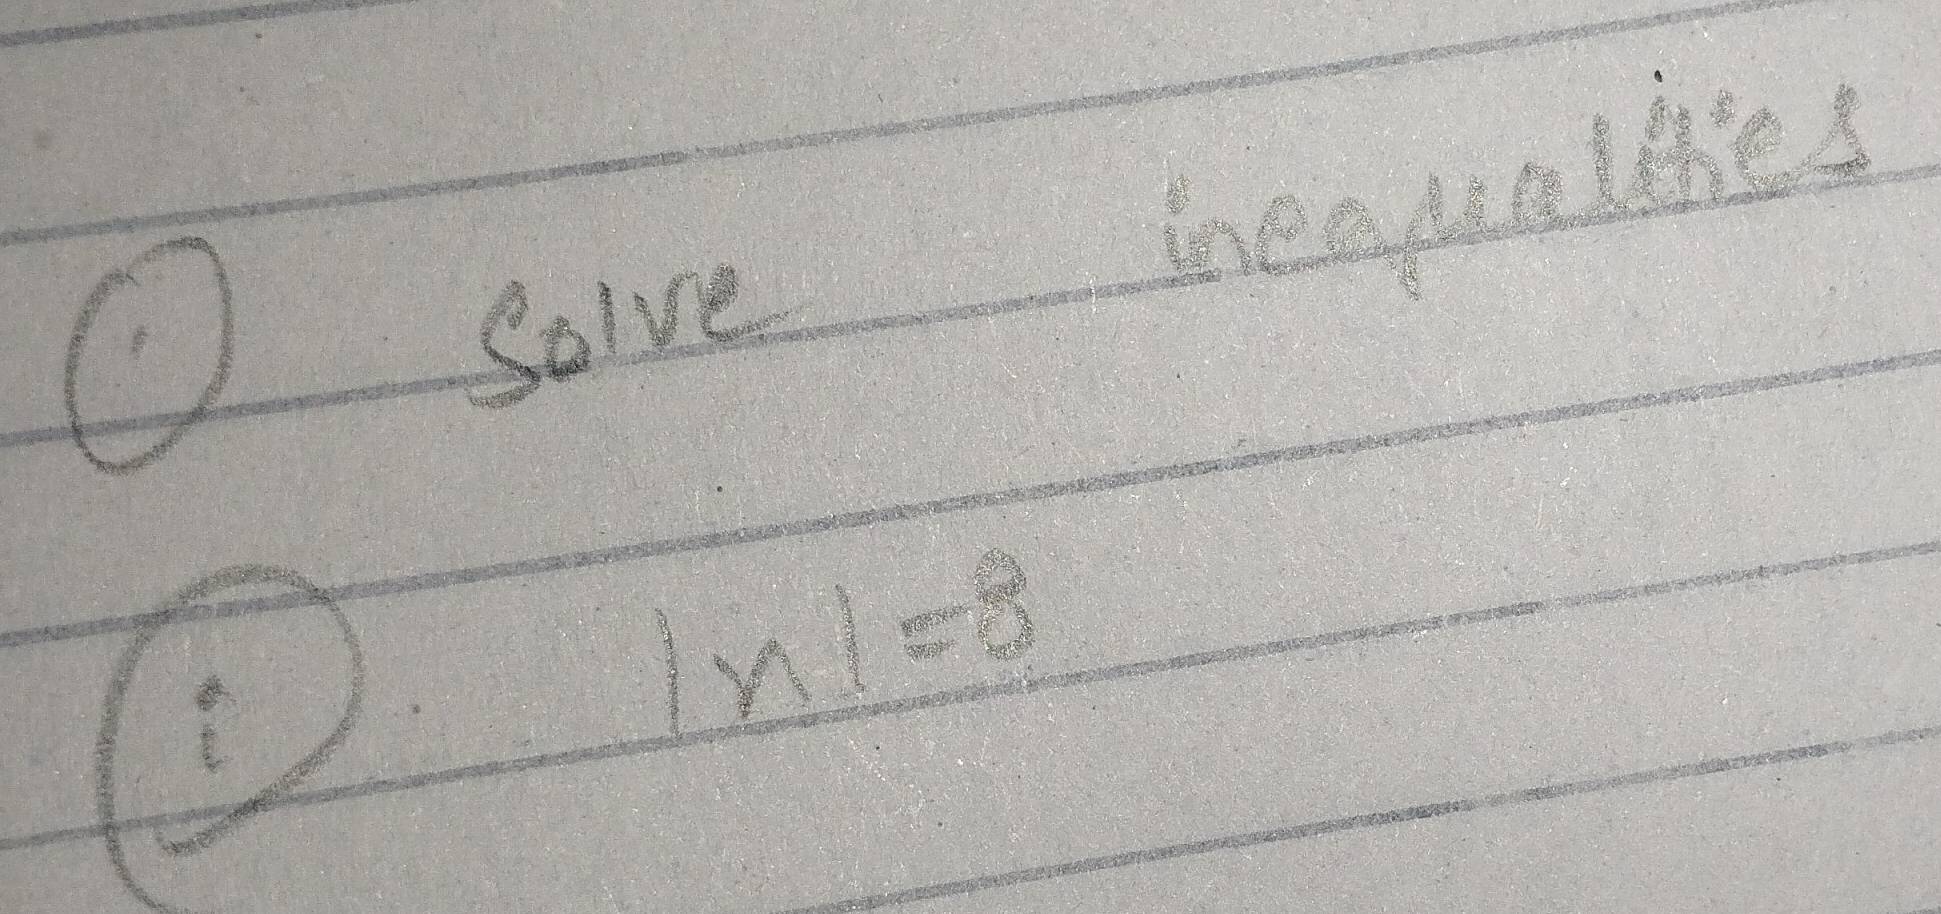 ① Solve inequalities
ⓘ |x| = 8